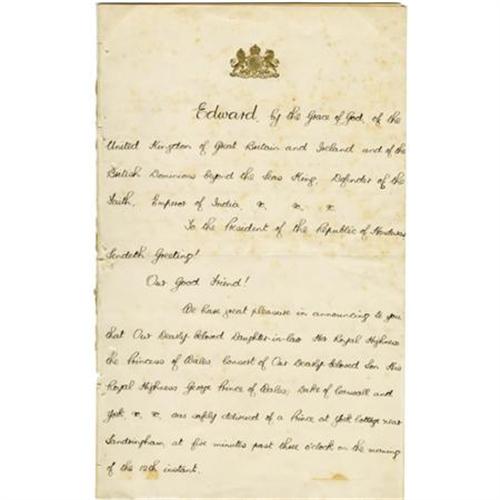 Edward, by the Grace of God, of the
United Kingdom of Great Britain and Ireland and of the
British Dominions beyond the Seas King, Defender of the
Faith, Emperor of India, &. &. &.
To the President of the Republic of Honduras
Sendeth Greeting!
Our Good Friend!
We have great pleasure in announcing to you
that Our Dearly-beloved Daughter-in-law Her Royal Highness
the Princess of Wales, Consort of Our Dearly-beloved Son His
Royal Highness George Prince of Wales, Duke of Cornwall and
York &. &. was safely delivered of a Prince at York Cottage near
Sandringham, at five minutes past three o'clock on the morning
of the 12th instant.